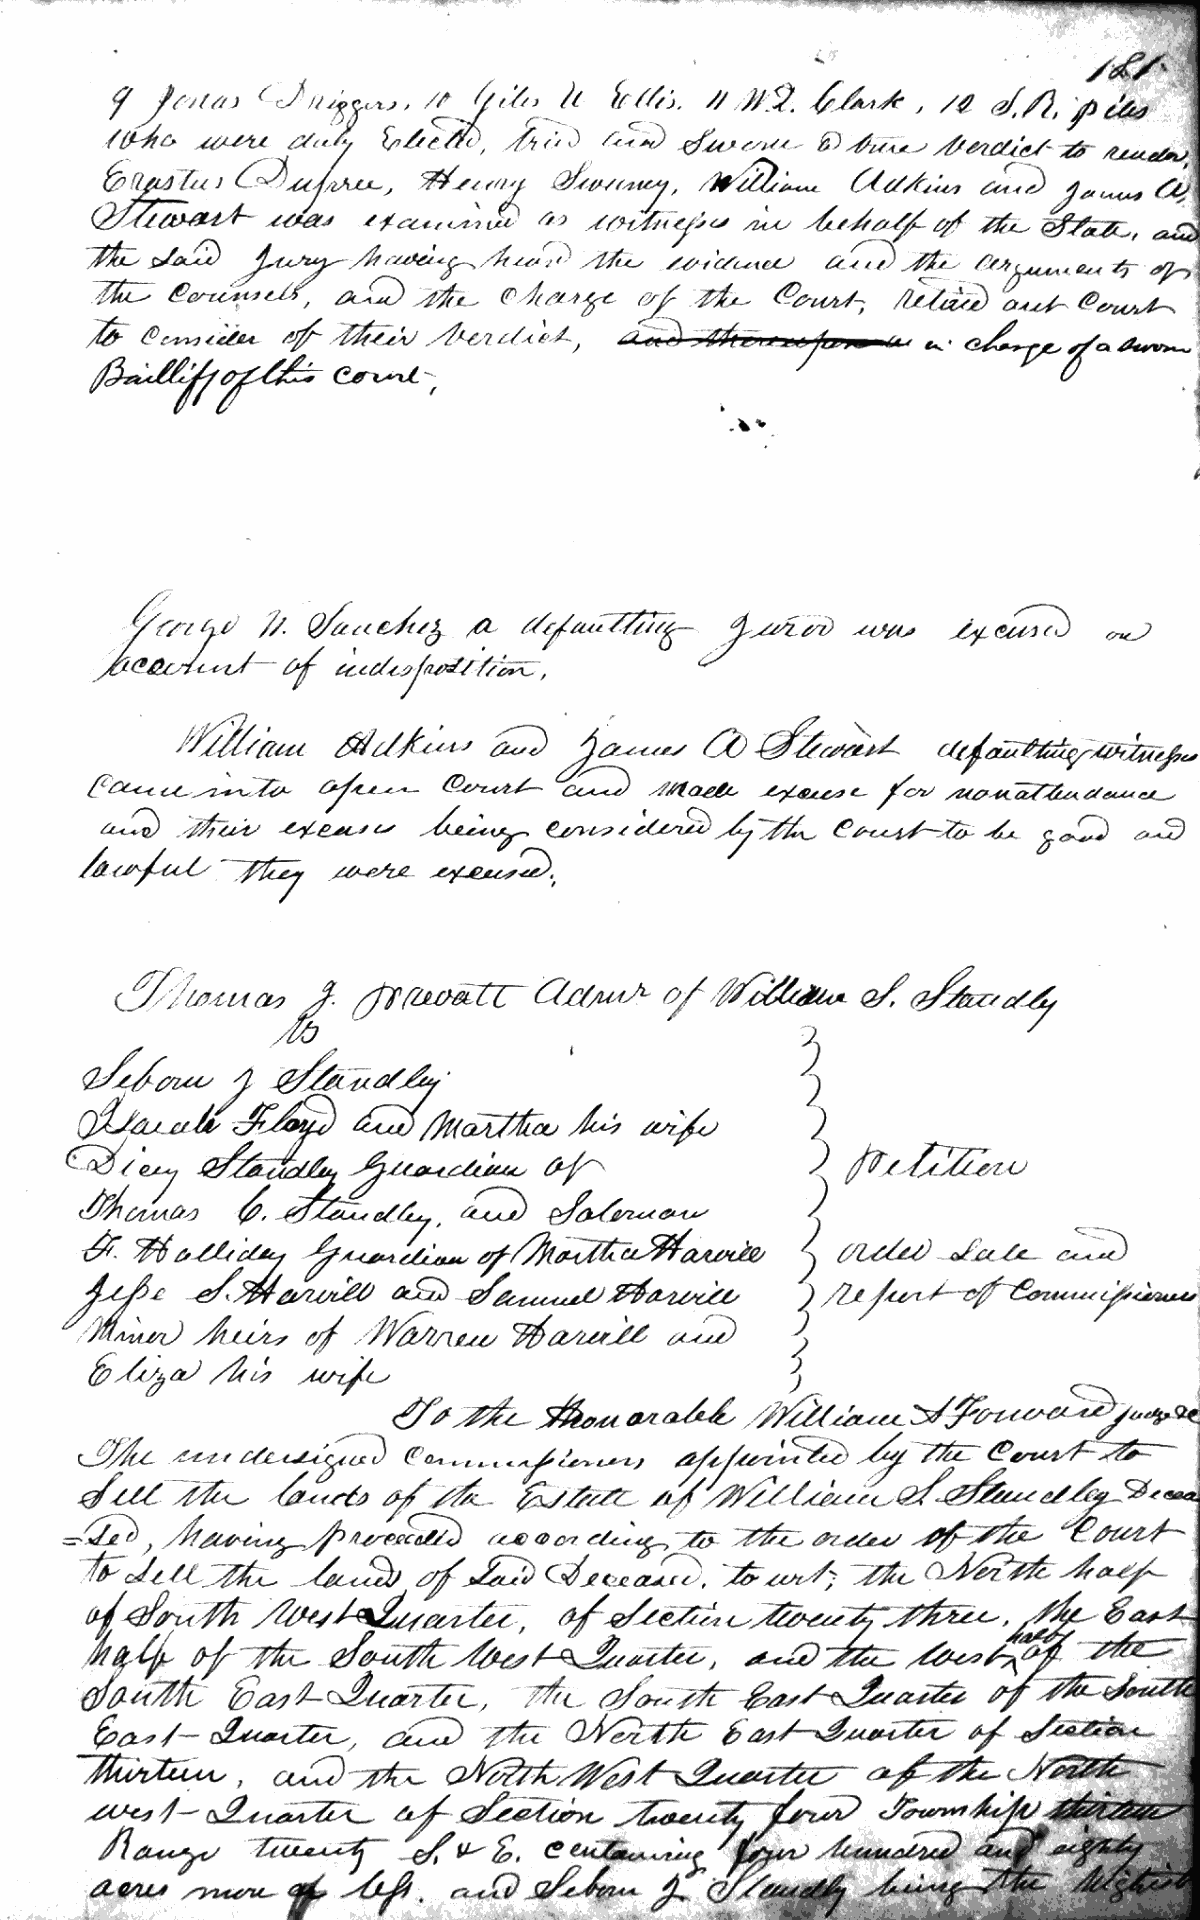 181.
9 Jonas Driggers, 10 Giles U Ellis. 11 W.Q. Clark, 12 S.R. Piles
who were duly Elected, tried and Sworn a true verdict to render,
Erastus Dupree, Henry Sweney, William Adkins and James A.
Stewart was examined as witnesses in behalf of the State, and
the said Jury having heard the evidence and the arguments of
the Counsels, and the Charge of the Court, retired out Court
to consider of their Verdict, and thereupon in charge of a sworn
Bailliff of this court,
George N. Sanchez a defaulting Juror was excused on
account of indisposition.
William Adkins and James A Stewart defaulting witnesses
came into open Court and made excuse for nonattendance
and their excuses being considered by the Court to be good and
lawful they were excused.
Thomas J. Prevatt Admr of William S. Standly
vs
Seborn J Standley
Isaiah Floyd and Martha his wife
Dicey Standley Guardian of
Thomas C. Standley, and Soloman
F. Halliday Guardian of Martha Harvill
Jesse S. Harvill and Samuel Harvill
Minor heirs of Warren Harvill and
Eliza his wife
Petition
order Sale and
report of Commissioners
To the Honorable William A Forward Judge &c
The undersigned Commissioners appointed by the Court to
Sell the lands of the Estate of William S. Standley Decea
=sed, having proceeded according to the order of the Court
to Sell the lands of Said Deceased. to wit; the North half
of South West Quarter, of Section twenty three, the East
half of the South West Quarter, and the west half of the
South East Quarter, the South East Quarter of the South
East Quarter, and the North East Quarter of Section
thirteen, and the North West Quarter of the North
west Quarter of Section twenty four Township thirteen
Range twenty S. & E. containing four hundred and eighty
acres more or less. and Seborn J Standly being the highest